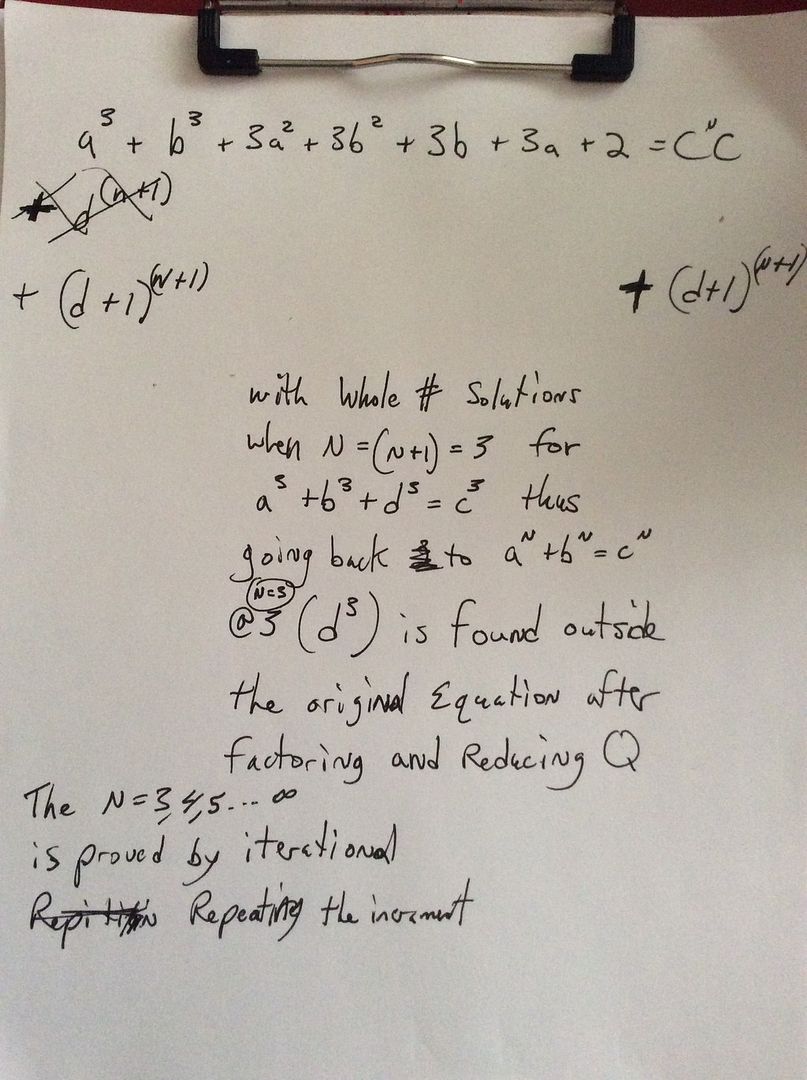 a³ + b³ + 3a² + 3b² + 3b + 3a + 2 = CᴺC
+ d^(n+1)
+ (d+1)^(N+1) + (d+1)^(N+1)
with Whole # Solutions
when N = (N+1) = 3 for
a³ + b³ + d³ = c³ thus
going back to aᴺ + bᴺ = cᴺ
N=3
@3 (d³) is found outside
the original Equation after
factoring and Reducing Q
The N=3,4,5... ∞
is proved by iterational
Repeating the increment